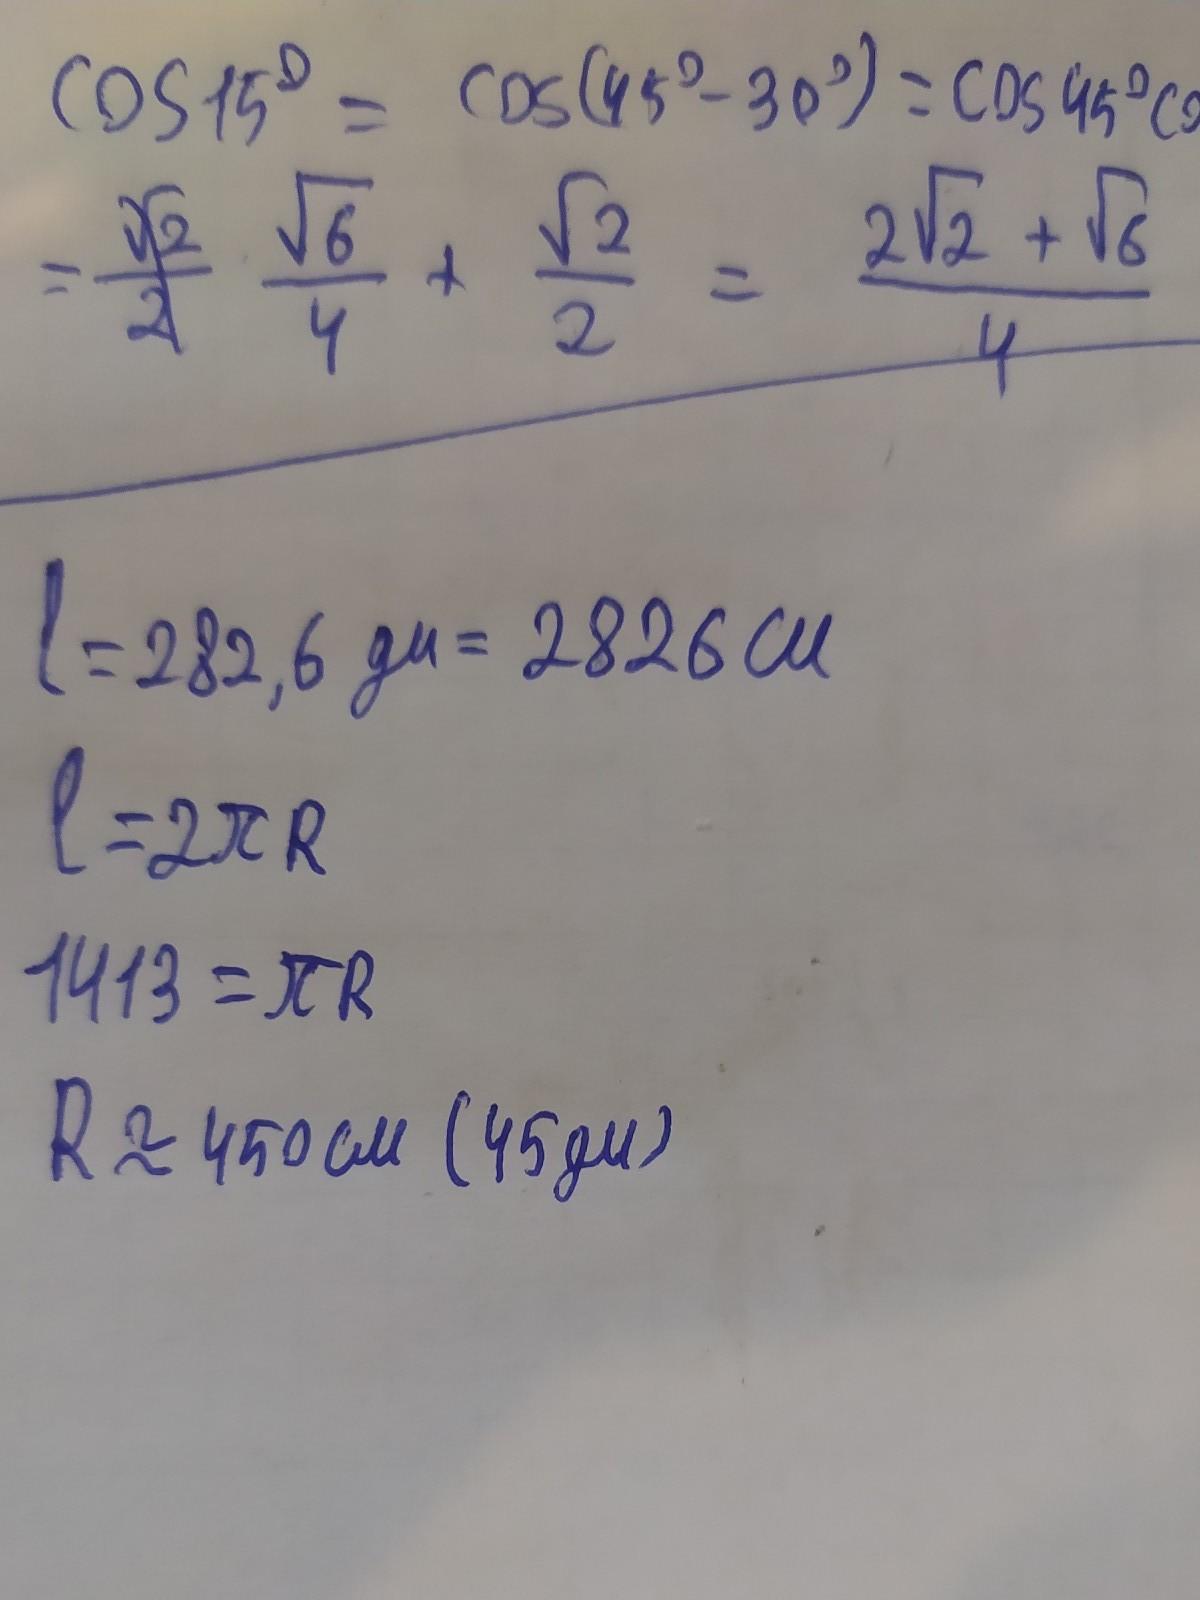 cos15° = cos(45°-30°) = cos45°co
= √6/4 + √2/2 = (2√2 + √6)/4
l = 282,6 дм = 2826 см
l = 2πR
1413 = πR
R ≈ 450 см (45 дм)